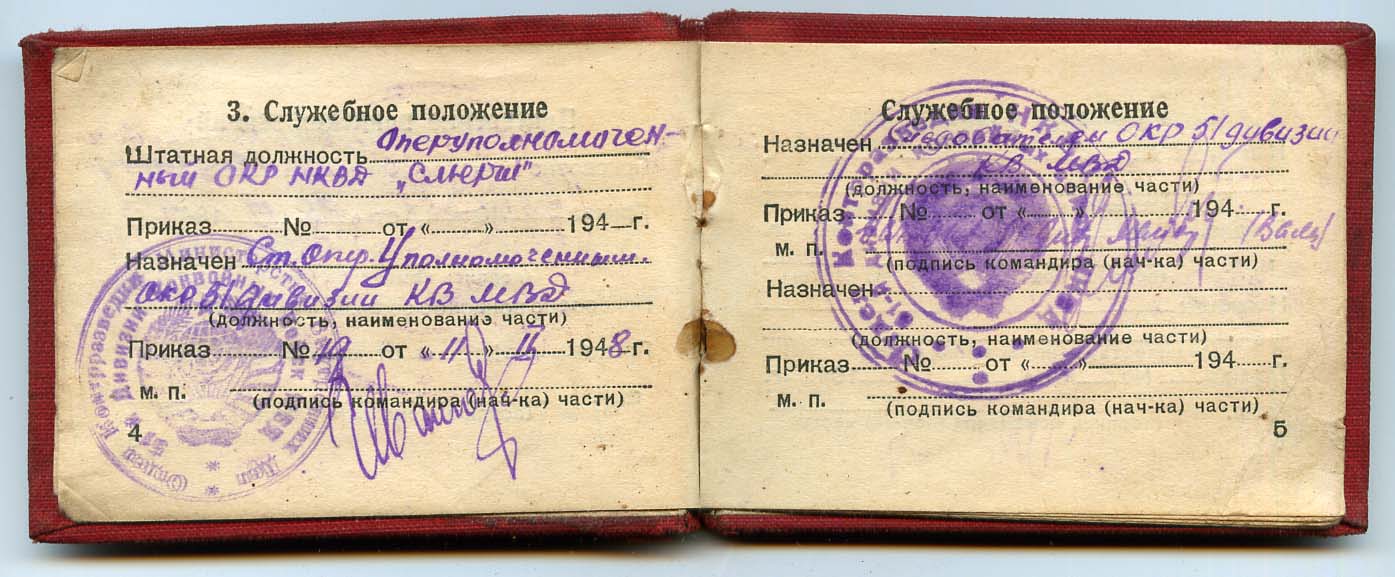 3. Служебное положение
Штатная должность Оперуполномочен-
ный ОКР НКВД „Смерш"
Приказ № от « » 194 г.
Назначен Ст. Опер. Уполномоченным
ОКР 51 дивизии КВ МВД
(должность, наименование части)
Приказ № 19 от « 11 » II 1948 г.
м. п.
(подпись командира (нач-ка) части)
4
Служебное положение
Назначен Следователем ОКР 51 дивизии
КВ МВД
(должность, наименование части)
Приказ № от « » 194 г.
м. п.
(подпись командира (нач-ка) части)
Назначен
(должность, наименование части)
Приказ № от « » 194 г.
м. п.
(подпись командира (нач-ка) части)
5